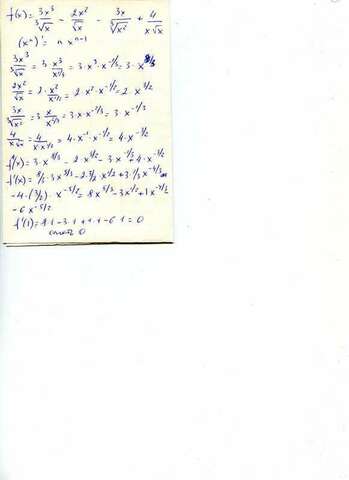 f(x) = 3x³/∛x − 2x²/√x − 3x/∛x² + 4/x√x
(xⁿ)' = n xⁿ⁻¹
3x³/∛x = 3·x³/x^1/3 = 3·x³·x^-1/3 = 3·x^8/3
2x²/√x = 2·x²/x^1/2 = 2·x²·x^-1/2 = 2 x^3/2
3x/∛x² = 3·x/x^2/3 = 3·x·x^-2/3 = 3·x^-1/3
4/x√x = 4/x·x^1/2 = 4·x⁻¹·x^-1/2 = 4·x^-1/2
f(x) = 3·x^8/3 − 2·x^3/2 − 3·x^-1/3 + 4·x^-1/2
f'(x) = 8/3·3x^5/3 − 2·3/2·x^1/2 + 3·1/3 x^-4/3
−4·(3/2)·x^-5/2 = 8x^5/3 − 3x^1/2 + 1x^-4/3
−6x^-5/2
f'(1) = 8·1 − 3·1 + 1·1 − 6·1 = 0
ответ 0